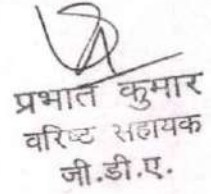 प्रभात कुमार
वरिष्ट सहायक
जी.डी.ए.